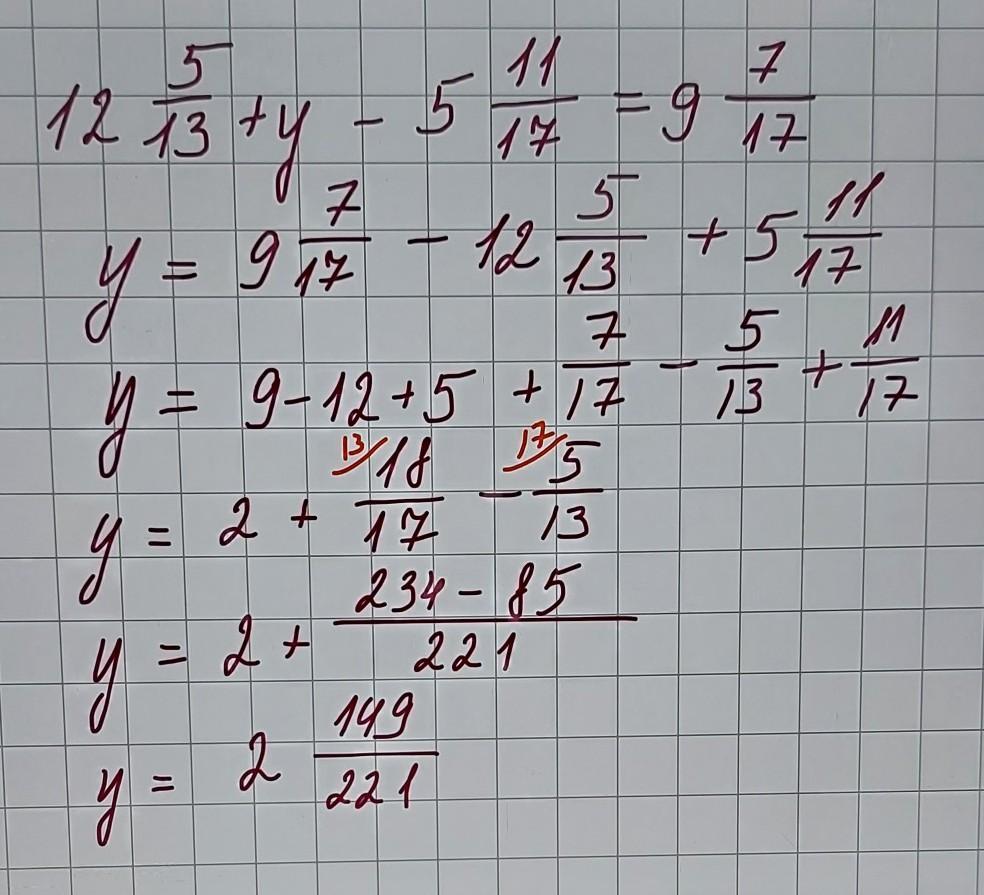 12 5/13 + y - 5 11/17 = 9 7/17
y = 9 7/17 - 12 5/13 + 5 11/17
y = 9 - 12 + 5 + 7/17 - 5/13 + 11/17
y = 2 + 13/ 18/17 - 17/ 5/13
y = 2 + (234 - 85)/221
y = 2 149/221